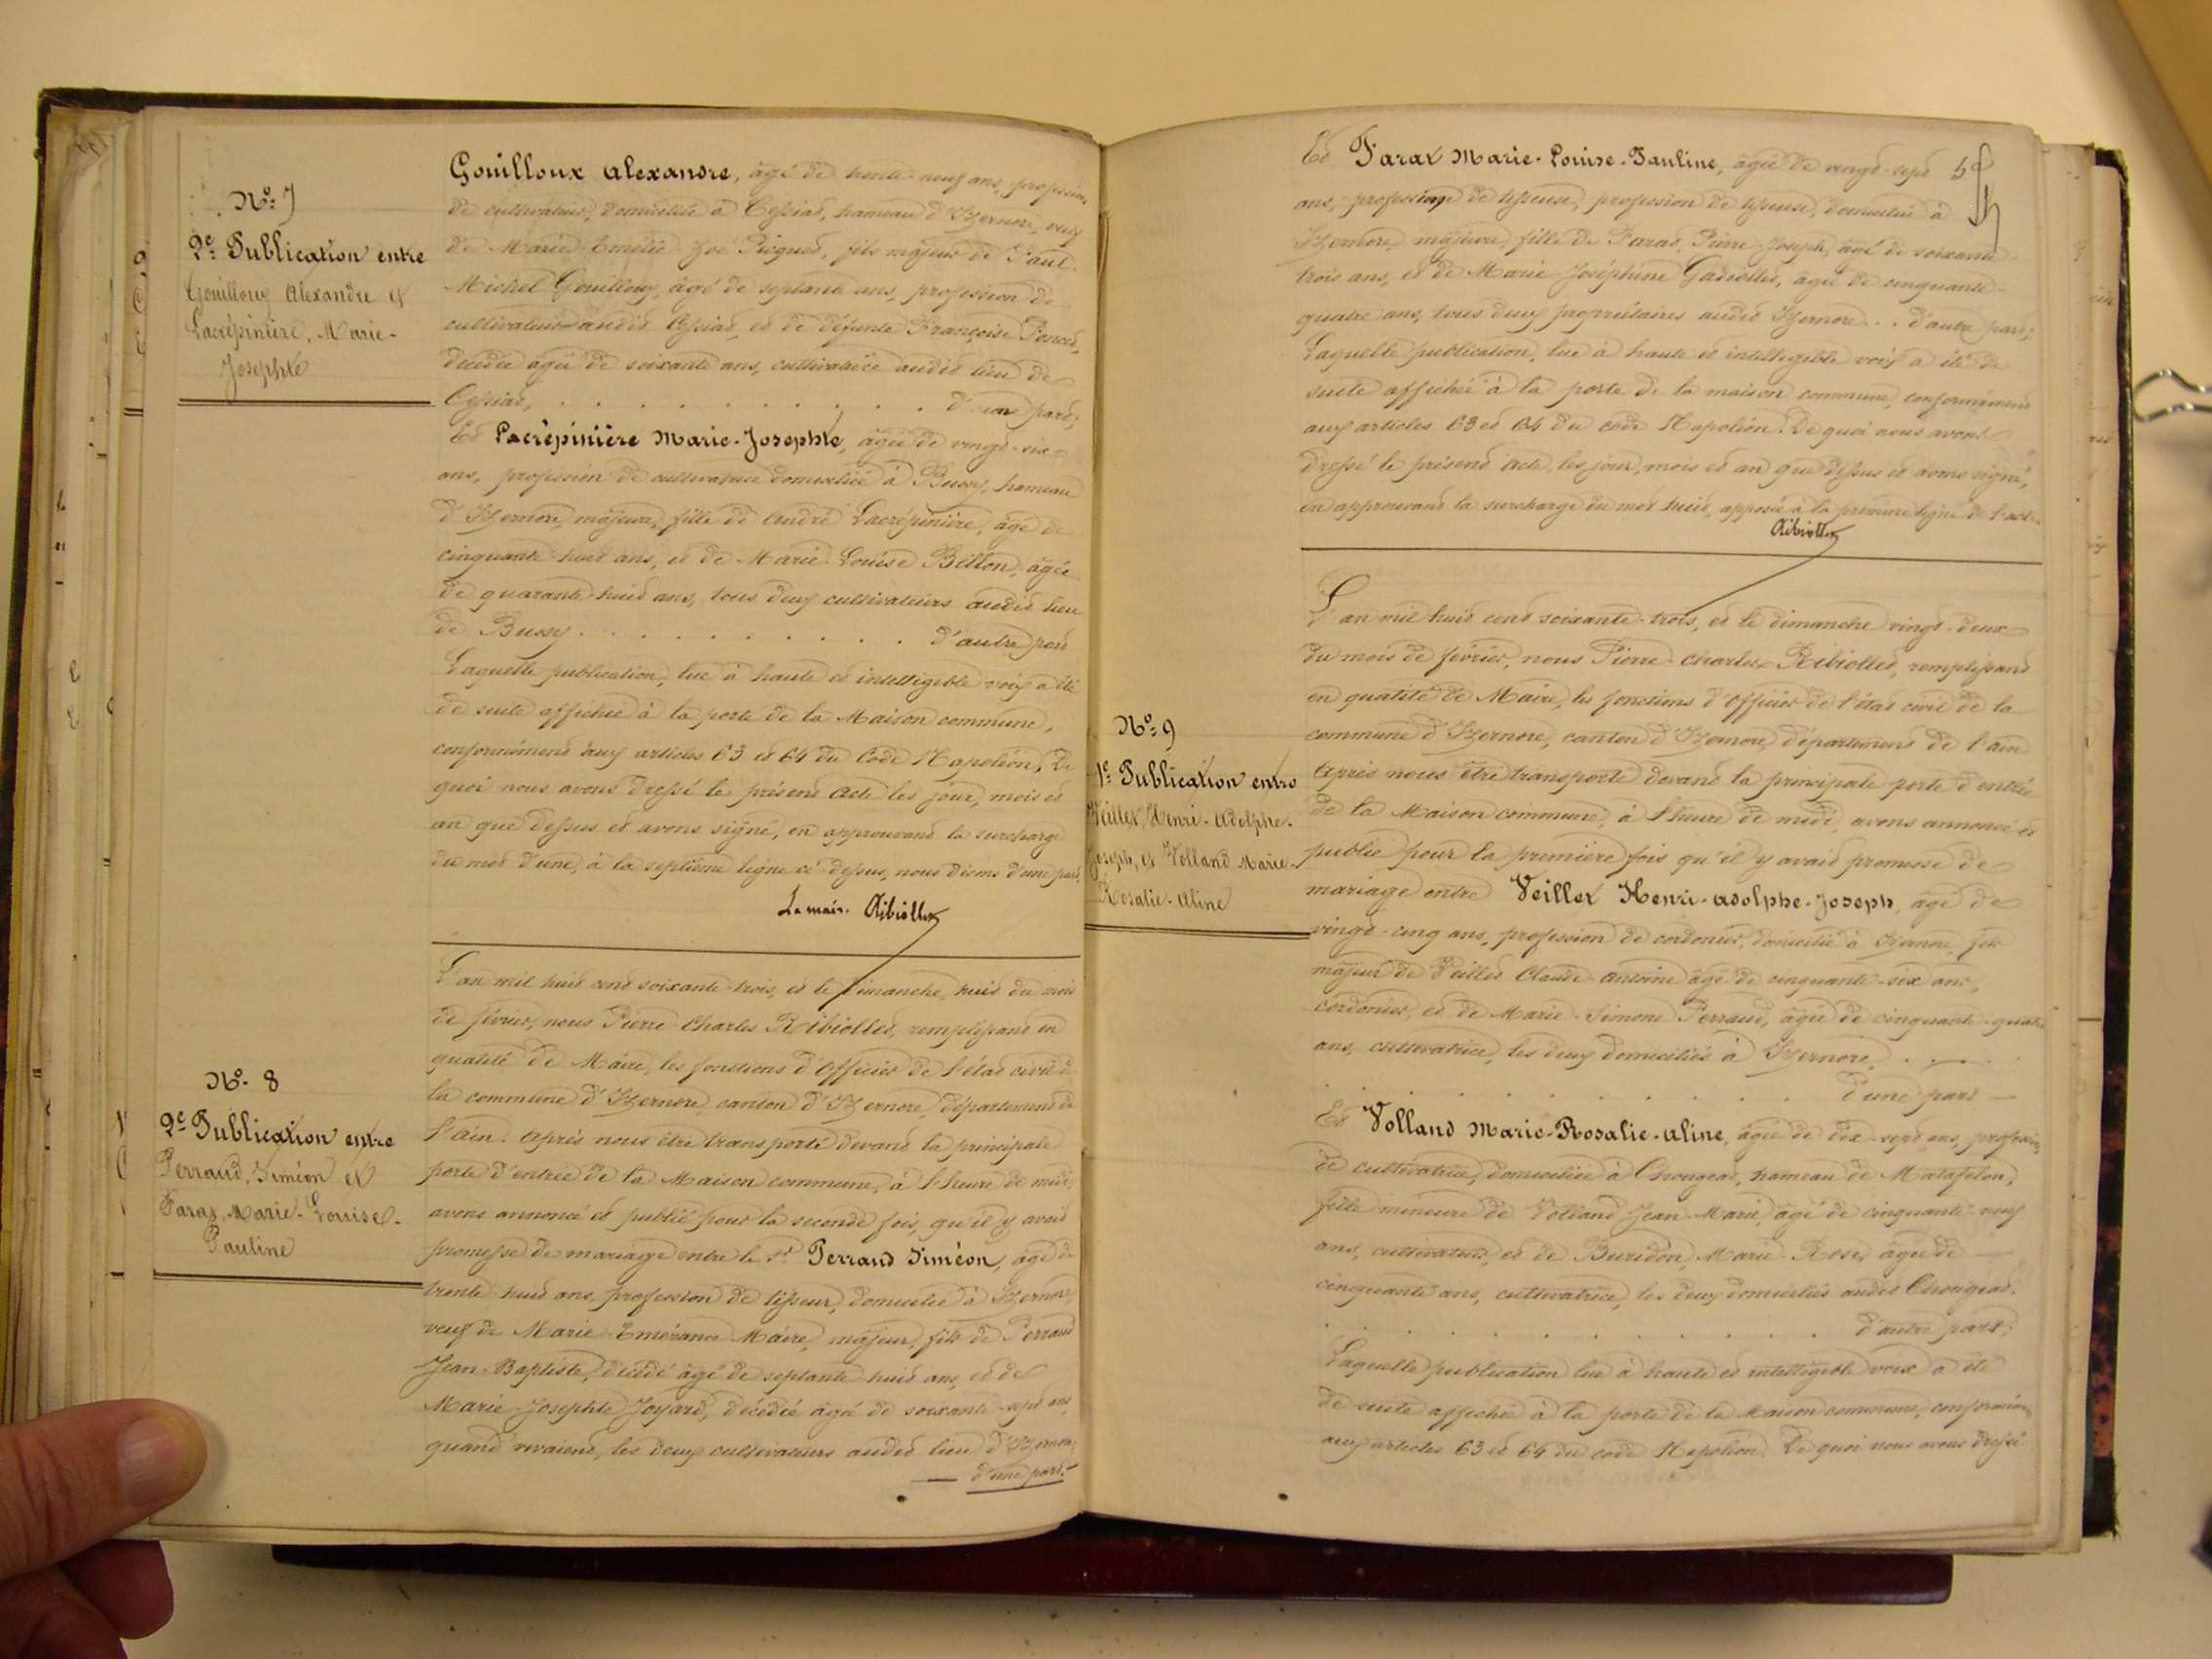 N.o 7
2.e Publication entre
Gouilloux Alexandre et
Lacrépinière, Marie-
Josephte
Gouilloux Alexandre, âgé de trente-neuf ans, profession
de cultivateur, domicilié à Cessiat, hameau d'Izernore, veuf
de Marie-Emélie-Zoé Picquet, fils majeur de Paul-
Michel Gouilloux, âgé de septante ans, profession de
cultivateur audit Cessiat, et de défunte Françoise
décédée agée de soixante ans, cultivatrice audit lieu de
Cessiat, . . . . . . . . . . . d'une part;
Et Lacrépinière Marie-Josephte, âgée de vingt-six
ans, profession de cultivatrice domiciliée à Bussy, hameau
d'Izernore, majeure, fille de André Lacrépinière, âgé de
cinquante-huit ans, et de Marie-Louise Billon, âgée
de quarante-huit ans, tous deux cultivateurs audit lieu
de Bussy . . . . . . . . . . d'autre part
Laquelle publication, lue à haute et intelligible voix a été
de suite affichée à la porte de la Maison commune,
conformément aux articles 63 et 64 du Code Napoléon, De
quoi nous avons dressé le présent acte les jour, mois et
an que dessus et avons signé, en approuvant la surcharge
du mot d'une, à la septième ligne ci-dessus, nous disons d'une part.
Le maire. Ribiollet
N.o 8
2.e Publication entre
Perraud, Siméon et
Farax, Marie-Louise-
Pauline
L'an mil huit cent soixante-trois, et le dimanche, huit du mois
de février, nous Pierre Charles Ribiollet, remplissant en
qualité de Maire, les fonctions d'Officier de l'état civil de
la commune d'Izernore, canton d'Izernore, département de
l'ain. Après nous être transporté devant la principale
porte d'entrée de la Maison commune, à l'heure de midi,
avons annoncé et publié pour la seconde fois, qu'il y avait
promesse de mariage entre le Sr Perraud Siméon, âgé de
trente-huit ans, profession de tisseur, domicilié à Izernore,
veuf de Marie-Emérance Maire, majeur, fils de Perraud
Jean-Baptiste, décédé âgé de septante-huit ans, et de
Marie-Josephte Joyard, décédée âgée de soixante-sept ans,
quand vivaient, les deux cultivateurs audit lieu d'Izernore,
— d'une part.
Et Farax Marie-Louise-Pauline, âgée de vingt-sept
ans, profession de tisseuse, profession de tisseuse, domiciliée à
Izernore, majeure, fille de Farax, Pierre-Joseph, âgé de soixante-
trois ans, et de Marie-Joséphine Gadiolles, âgée de cinquante-
quatre ans, tous deux propriétaires audit Izernore . . . d'autre part;
Laquelle publication, lue à haute et intelligible voix a été de
suite affichée à la porte de la maison commune, conformément
aux articles 63 et 64 du code Napoléon. De quoi nous avons
dressé le présent acte, les jour, mois et an que dessus et avons signé,
en approuvant la surcharge du mot huit, apposé à la première ligne de l'acte.
Ribiollet
N.o 9
1.e Publication entre
Veillet, Henri-Adolphe-
Joseph, et Volland Marie-
Rosalie-Aline
L'an mil huit cent soixante-trois, et le dimanche vingt-deux
du mois de février, nous Pierre-Charles Ribiollet, remplissant
en qualité de Maire, les fonctions d'Officier de l'état civil de la
commune d'Izernore, canton d'Izernore, département de l'ain
Après nous être transporté devant la principale porte d'entrée
de la Maison commune, à l'heure de midi, avons annoncé et
publié pour la première fois qu'il y avait promesse de
mariage entre Veillet Henri-adolphe-Joseph, âgé de
vingt-cinq ans, profession de cordonier, domicilié à Izernore, fils
majeur de Veillet Claude-Antoine âgé de cinquante-six ans,
cordonier, et de Marie-Simone Perraud, âgée de cinquante-quatre
ans, cultivatrice, les deux domiciliés à Izernore, . . .
. . . . . . . . . . . d'une part —
Et Volland Marie-Rosalie-Aline, âgée de dix-sept ans, profession
de cultivatrice, domiciliée à Chougeat, hameau de Matafelon,
fille mineure de Volland Jean-Marie, âgé de cinquante-neuf
ans, cultivateur, et de Buridon, Marie-Rose, âgée de —
cinquante ans, cultivatrice, les deux domiciliés audit Chougeat.
. . . . . . . . . . . . d'autre part;
Laquelle publication lue à haute et intelligible voix a été
de suite affichée à la porte de la Maison commune, conformément
aux articles 63 et 64 du code Napoléon. De quoi nous avons dressé